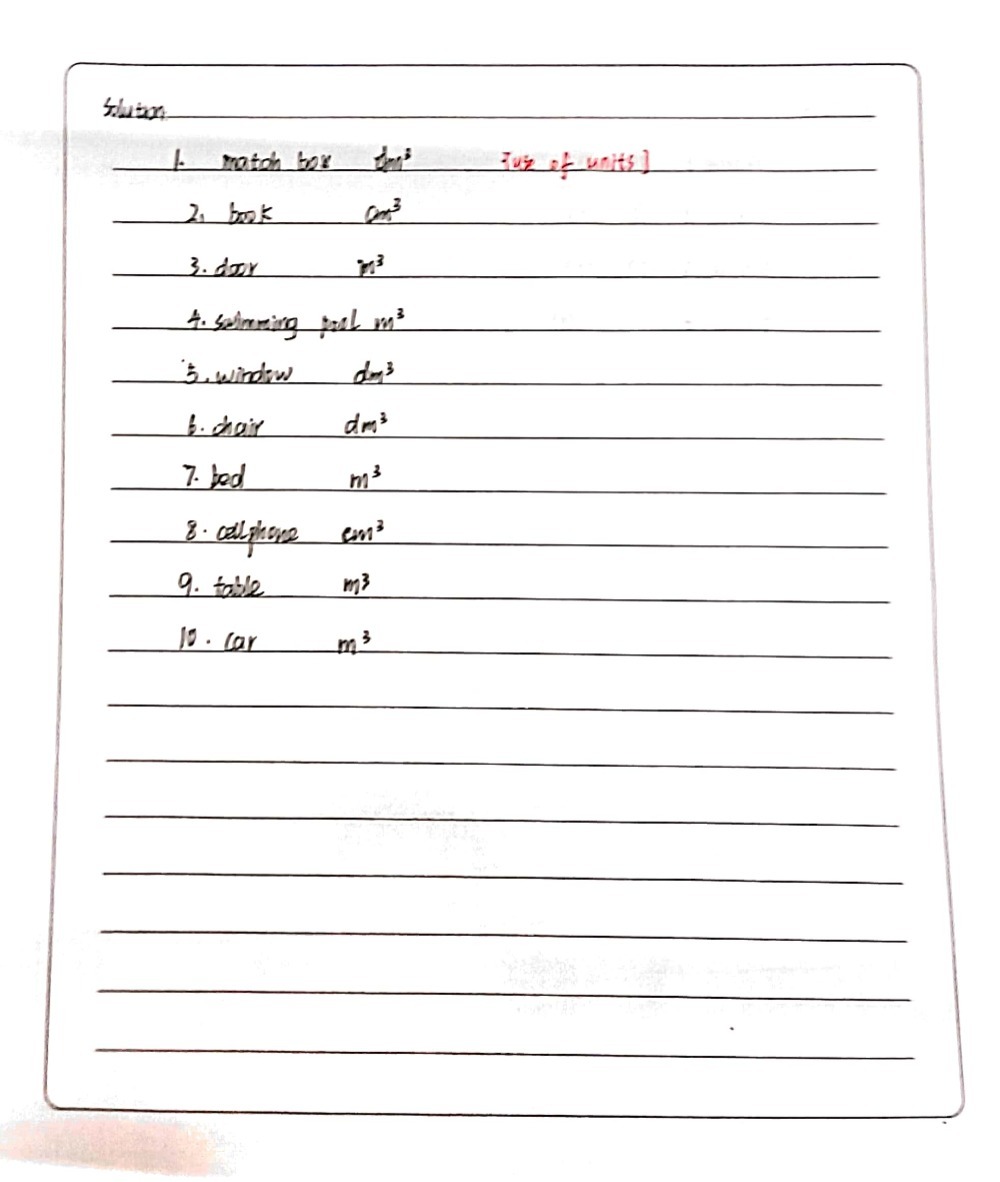 Solution
1. match box dm³ [use of units]
2. book cm³
3. door m³
4. swimming pool m³
5. window dm³
6. chair dm³
7. bed m³
8. cellphone cm³
9. table m³
10. car m³